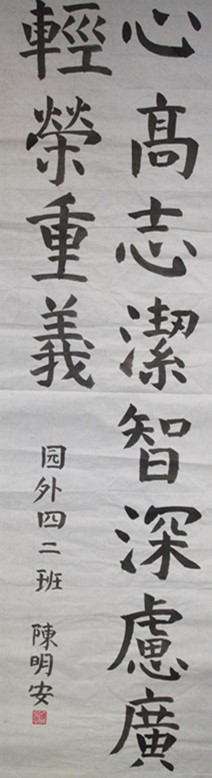 心高志潔智深慮廣
輕榮重義
园外四二班 陳明安